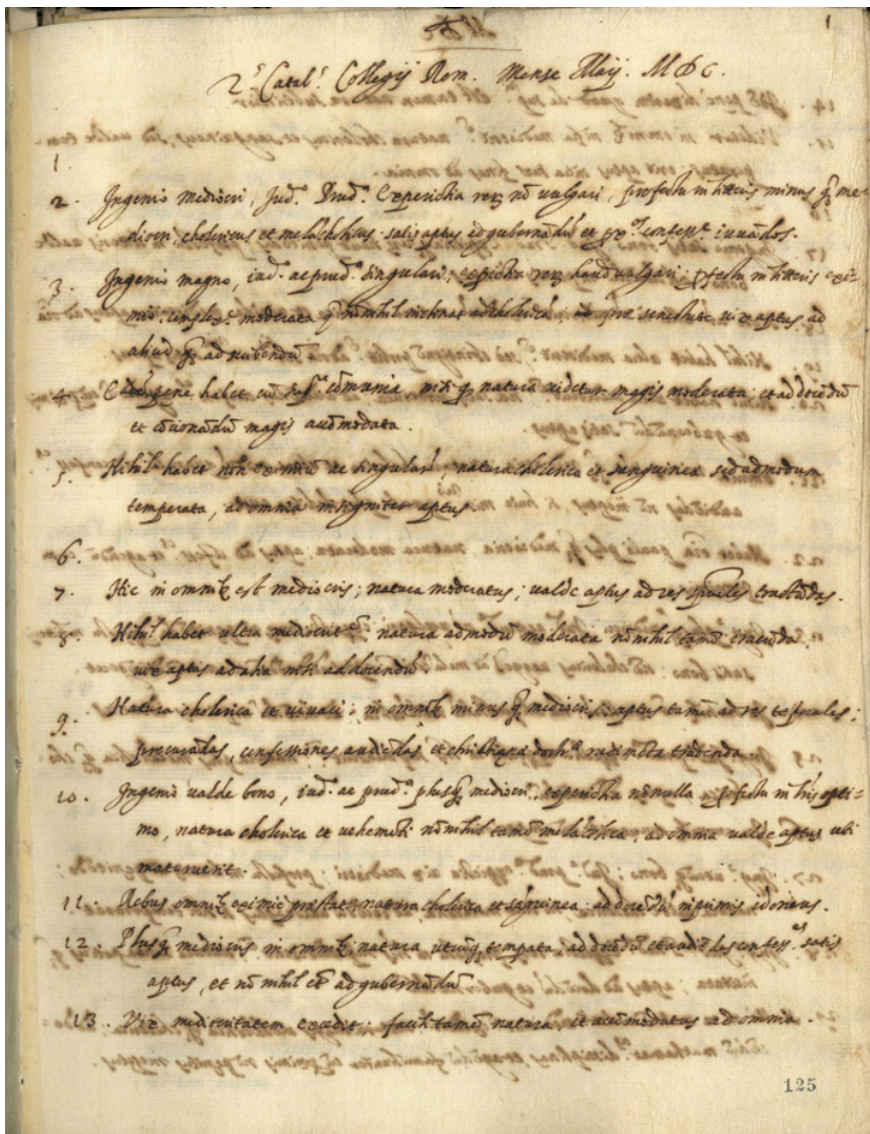 1
2.ͤ Catal.ͥ Collegij Rom. Mense Maij. MDC.
1
2. Ingenio mediocri, Jud.º Prud.ª Experiẽtia rerũ nõ vulgari, profectu in litteris minus q̃ me-
diocri, cholericus et melãcholicus. satis aptus ad gubernãdũ et confess.
3. Ingenio magno, iud.º ac prud.ª singulari, experiẽtia rerũ haud vulgari; profectu in litteris exi-
mio. complex.ᵉ moderata q̃ nõnihil inclinat ad cholericã, prae senectute vix aptus ad
aliud q̃ ad scribendũ
4. pene habet cũ sup.ᵉ cõmunia, nisi q̃ natura videtur magis moderata; et ad docẽdũ
et cõcionãdũ magis accõmodata.
5. Nihil habet nõ eximiũ ac singulare; natura cholerica et sanguinea sed admodum
temperata, ad omnia insigniter aptus.
6.
7. Hic in omnibꝫ est mediocris; natura moderatus; valde aptus ad res tractãdas.
8. Nihil habet ultra mediocrit.ᵉᵐ natura admodũ moderata nõnihil tamẽ iracũda.
vix aptus ad alia nisi ad docendũ
9. Natura cholerica et vivaci; in omnibꝫ minus q̃ mediocris; aptus tamẽ ad res tẽporales;
procurãdas, confessiones audiẽdas et christiana doct.ª rudimẽta tradenda.
10. Ingenio valde bono, iud.º ac prud.ª plusq̃ mediocri, experiẽtia nõnulla profectu in lr̃is opti-
mo, natura cholerica et vehemẽti nõnihil tamẽ melãcholica, ad omnia valde aptus ubi
maturuerit.
11. Rebus omnibꝫ eximie prestat; natura cholerica et sãguinea. ad docẽdũ inprimis idoneus.
12. Plusq̃ mediocris in omnibꝫ, natura utcũq̃ tẽperata, ad docẽdũ et audiẽdas confess.ᵉˢ satis
aptus, et nõnihil et ad gubernãdũ
13. Vix mediocritatem excedit; facili tamẽ natura, et accõmodatus ad omnia.
125